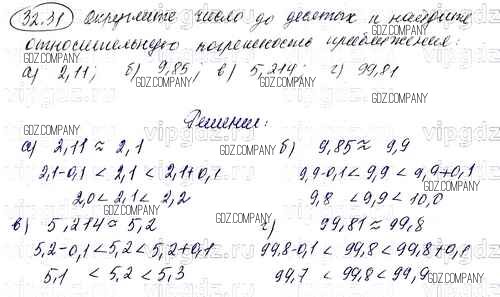 32.31 Округлите число до десятых и найдите
относительную погрешность приближения:
а) 2,11; б) 9,85; в) 5,214; г) 99,81
Решение:
а) 2,11 ≈ 2,1 б) 9,85 ≈ 9,9
2,1-0,1 < 2,1 < 2,1+0,1 9,9-0,1 < 9,9 < 9,9+0,1
2,0 < 2,1 < 2,2 9,8 < 9,9 < 10,0
в) 5,214 ≈ 5,2 г) 99,81 ≈ 99,8
5,2-0,1 < 5,2 < 5,2+0,1 99,8-0,1 < 99,8 < 99,8+0,1
5,1 < 5,2 < 5,3 99,7 < 99,8 < 99,9
GDZ.COMPANY
vipgdz.com